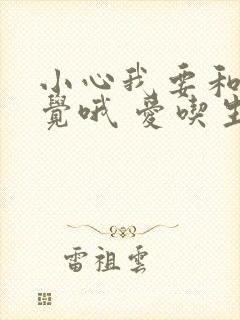 小心我要和
覺哦 愛喫
雷祖雲